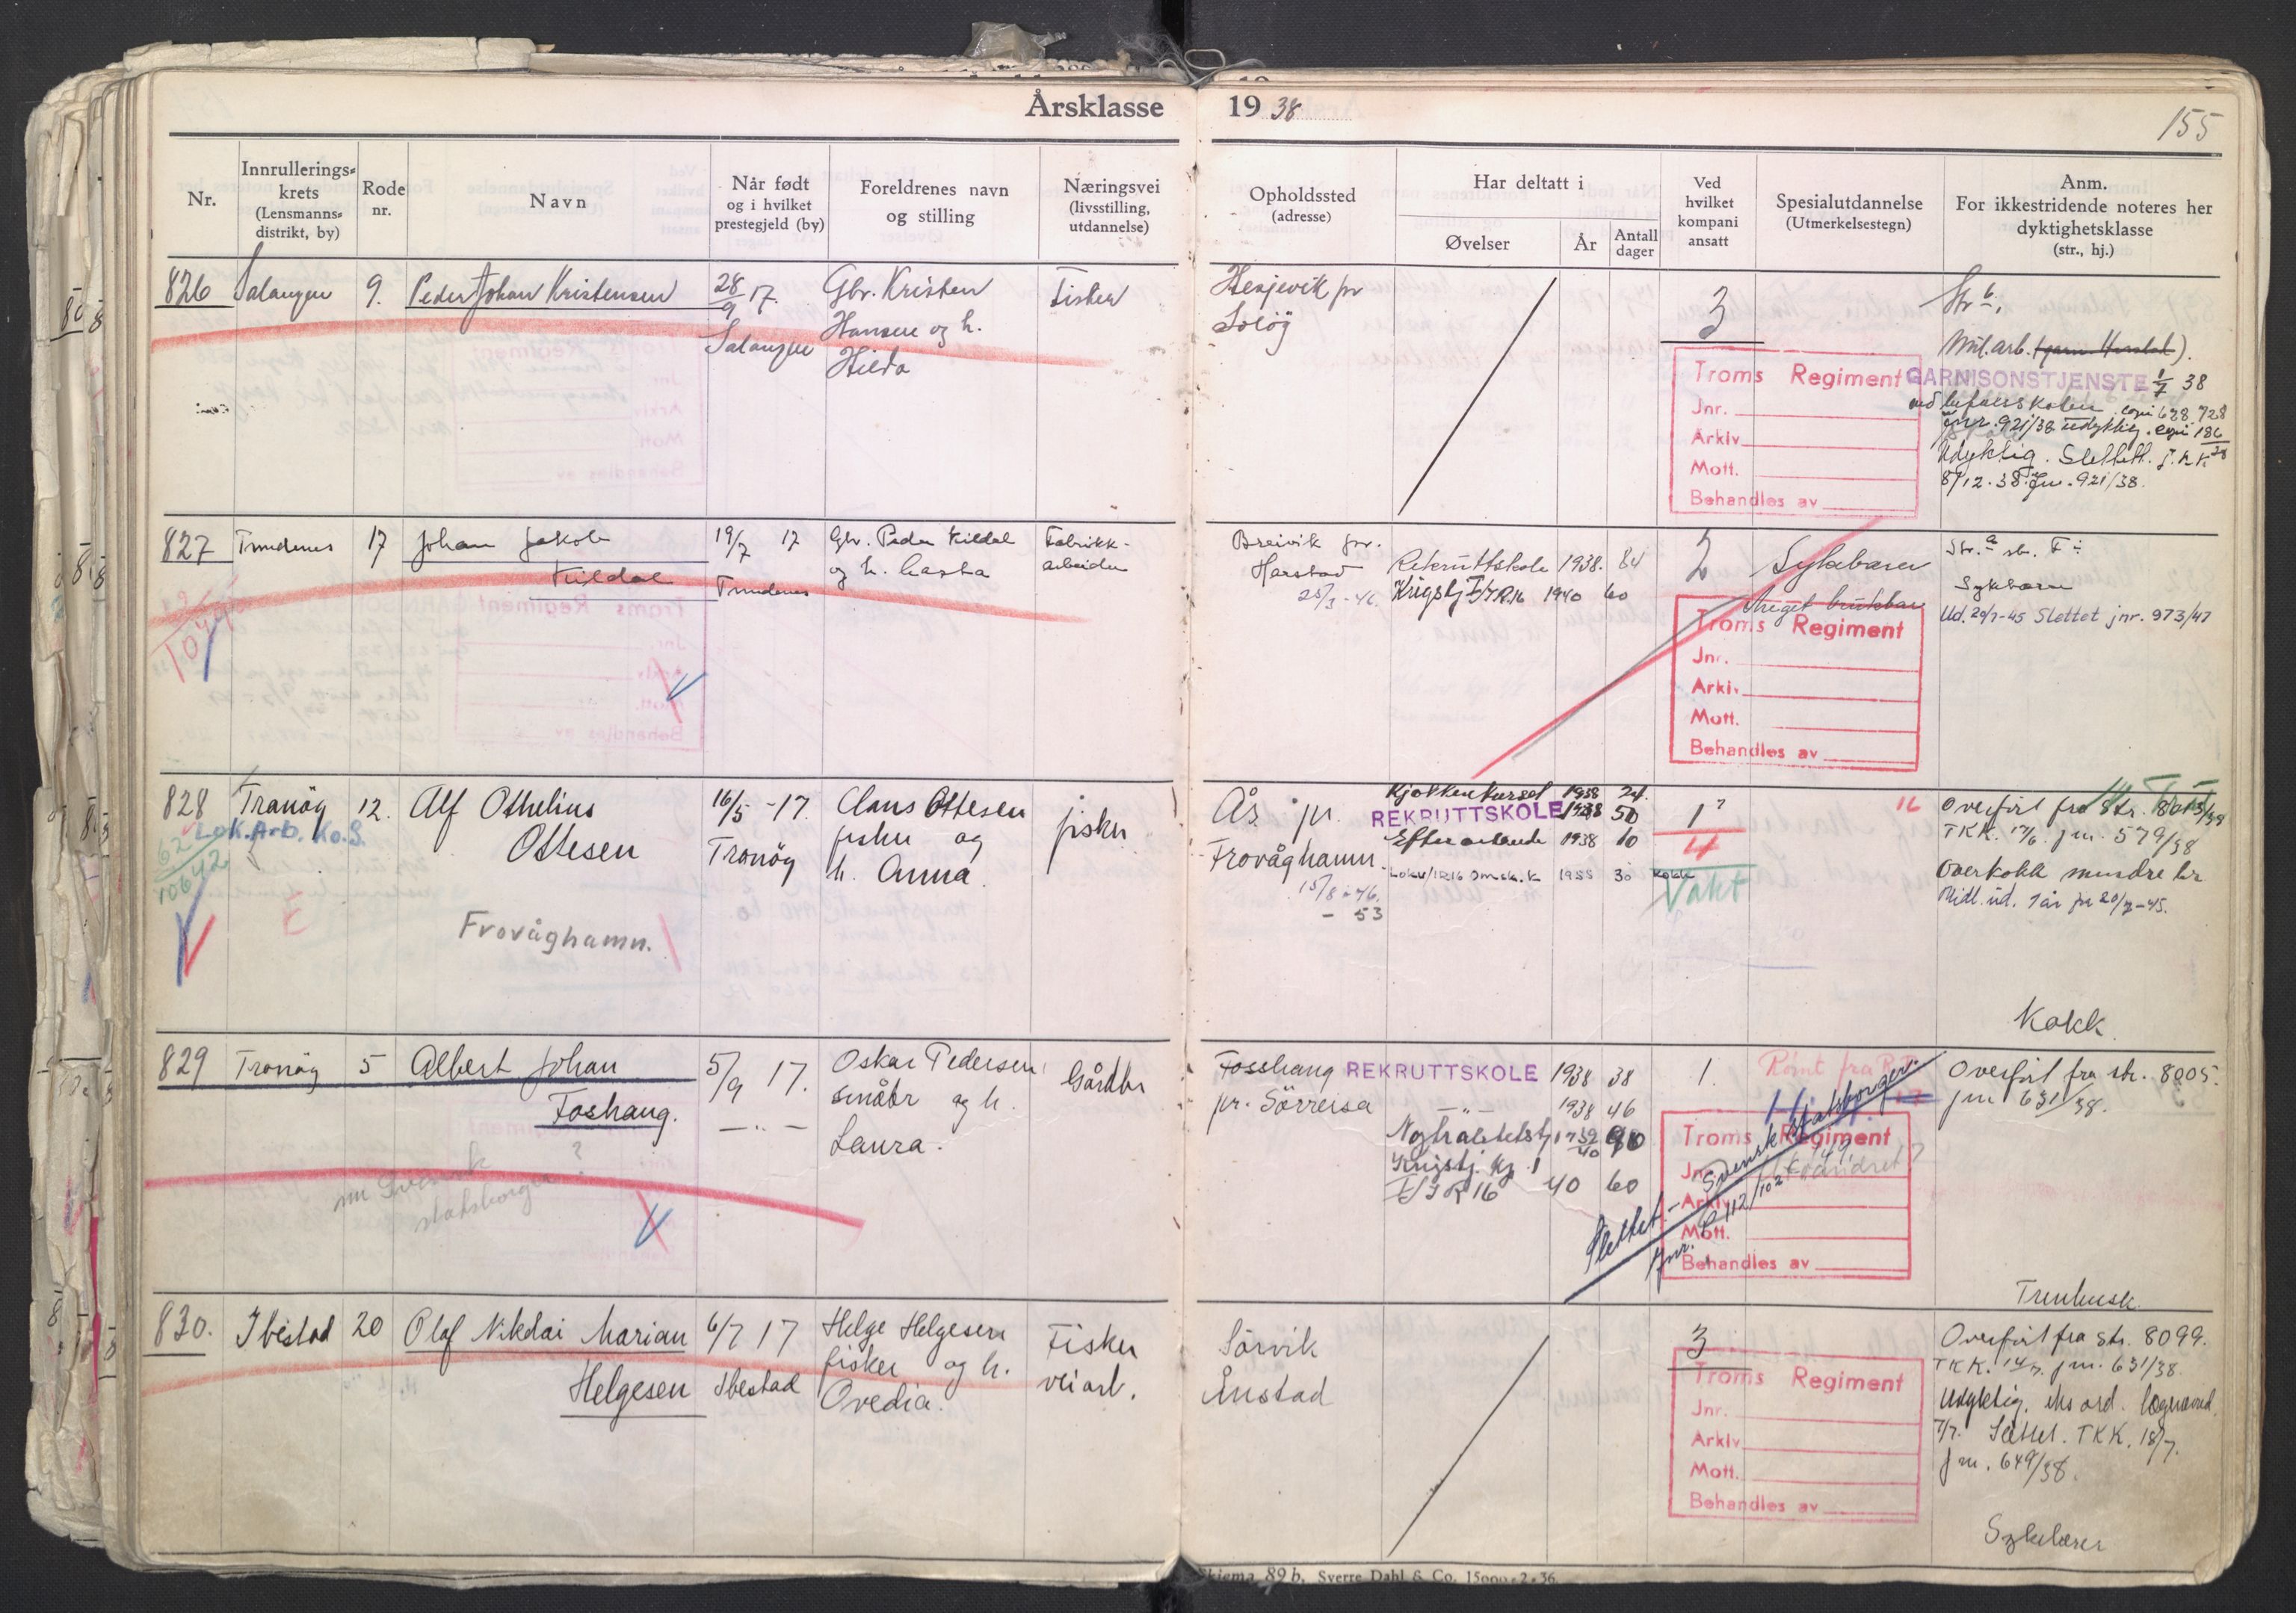 Årsklasse 1938
155
Nr.
Innrullerings-
krets
(Lensmanns-
distrikt, by)
Rode
nr.
Navn
Når født
og i hvilket
prestegjeld (by)
Foreldrenes navn
og stilling
Næringsvei
(livsstilling,
utdannelse)
Opholdssted
(adresse)
Har deltatt i
Øvelser
År
Antall
dager
Ved
hvilket
kompani
ansatt
Spesialutdannelse
(Utmerkelsestegn)
Anm.
For ikkestridende noteres her
dyktighetsklasse
(str., hj.)
826 Salangen 9. Peder Johan Kristensen
28/9 17.
Salangen
Gbr. Kristen
Hansen og h.
Hilda
Fisker
Hesjevik pr
Soløy
3
Str b.
Mil. arb. (garn. Harstad).
GARNISONSTJENESTE 1/7 38
ved befalsskolen
jnr. 921/38 udyktig.
Udyktig. Slettet.
8/12.38. Jnr. 921/38.
Troms Regiment
Jnr.
Arkiv
Mott.
Behandles av
827 Trondenes 17 Johan Jakob
Kildal
19/7 17
Trondenes
Gbr. Peder Kildal
og h. Hasta
Fabrikk-
arbeider
Breivik pr.
Harstad
25/3-46.
Rekruttskole 1938. 84
Krigstj I/IR.16 1940 60
2
Sykebærer
Meget brukbar
Str. a
Sykebærer
Ud. 20/7-45 Slettet jnr. 973/47
Troms Regiment
Jnr.
Arkiv
Mott.
Behandles av
828 Tranøy 12. Alf Othelius
Ottesen
Lok. Arb. Ko. S.
10642
Frovåghamn.
16/5 -17.
Tranøy
Claus Ottesen
fisker og
h. Anna.
fisker
Ås pr.
Frovåghamn.
15/8-46.
- 53
Kjøkkenkurset 1938 24.
REKRUTTSKOLE 1938 50
Efterutdande 1938 10
Lokv/IR16 Omsk.k 1953 30 Kokk
1
4
Vakt
16
Overført fra Str. 8013/39
TKK. 17/6. jnr. 579/38
Overkokk mindre br
Midl. ud. 1 år fr 20/7-45.
Kokk.
829 Tranøy 5 Albert Johan
Foshaug.
nu Svensk
statsborger ?
5/9 17.
— " —
Oskar Pedersen
småbr og h.
Laura.
Gårdbr
Fosshaug
pr. Sörreisa
REKRUTTSKOLE 1938 38
— " — 1938 46
Nøytralitetstj 1939/40 90
Krigstj. Kp. 1
I/IR 16 40 60
1.
Rømt fra
Slettet - Svensk statsborger.
Jnr. 6112/102
Overført fra str. 8005.
jnr 631/38.
Trenkusk.
Troms Regiment
Jnr.
Arkiv
Mott.
Behandles av
830. Ibestad 20 Olaf Nikolai Marian
Helgesen
6/7 17
Ibestad
Helge Helgesen
fisker og h.
Ovedia.
Fisker
veiarb.
Sörvik
Ånstad
3
Overført fra str. 8099.
TKK. 14/7. jnr. 631/38.
Udyktig, eks ord. lægenævnd.
7/7. Slettet. TKK. 18/7.
jnr. 649/38.
Sykebærer
Troms Regiment
Jnr.
Arkiv
Mott.
Behandles av
Skjema 89 b. Sverre Dahl & Co. 15000-2-36.